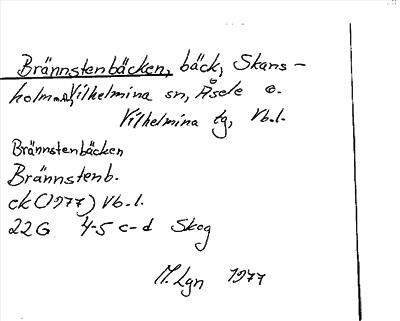 Brännstenbäcken, bäck, Skans-
holm, Vilhelmina sn, Åsele o.
Vilhelmina tg, Vb.l.
Brännstenbäcken
Brännstenb.
ck (1977) Vb.l.
22G 4-5 c-d Skog
M. Lgn 1977